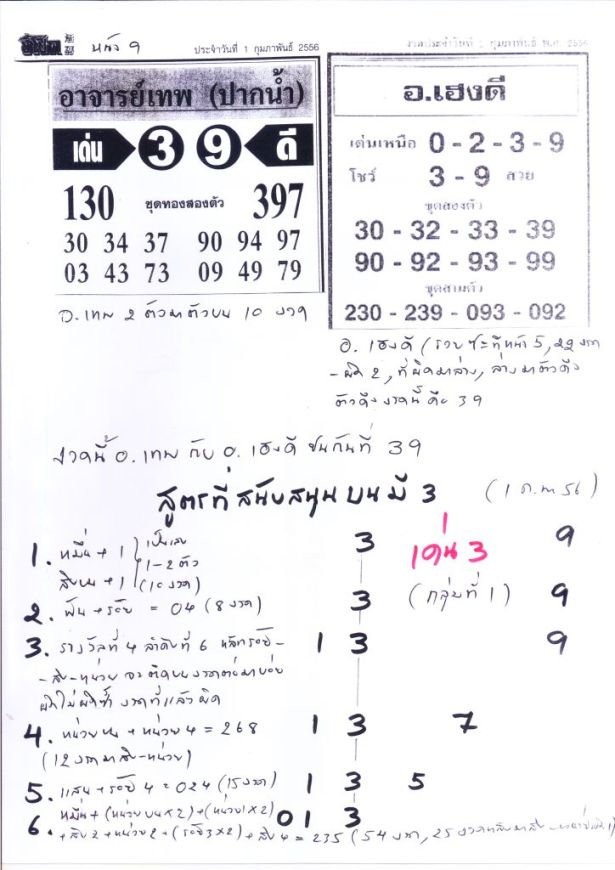 หน้า 9
ประจำวันที่ 1 กุมภาพันธ์ 2556
งวดประจำวันที่ 1 กุมภาพันธ์ พ.ศ. 2556
อาจารย์เทพ (ปากน้ำ)
เด่น 3 9 ดี
130 ชุดทองสองตัว 397
30 34 37 90 94 97
03 43 73 09 49 79
อ.เฮงดี
เด่นเหนือ 0 - 2 - 3 - 9
โชว์ 3 - 9 สวย
ชุดสองตัว
30 - 32 - 33 - 39
90 - 92 - 93 - 99
ชุดสามตัว
230 - 239 - 093 - 092
อ. เทพ 2 ตัวมาตัวบน 10 งวด
อ. เฮงดี (รวย 5, 22 งวด
- ผิด 2, ที่ผิดมาล่าง, ล่างมาตัวดึง
ตัวดึงงวดนี้คือ 39
งวดนี้ อ. เทพ กับ อ. เฮงดี ชนกันที่ 39
สูตรที่สนับสนุนบนมี 3 (1 ก.พ. 56)
1. หมื่น + 1 เป็นเลข 3 เด่น 3 9
สิบบน + 1 1-2 ตัว (10 งวด)
2. พัน + ร้อย = 04 (8 งวด) 3 (กลุ่มที่ 1) 9
3. รางวัลที่ 4 ลำดับที่ 6 หลักร้อย- 1 3 9
-สิบ-หน่วย จะติดบนงวดต่อมาบ่อย
ผิดไม่ผิดซ้ำ งวดที่แล้วผิด
4. หน่วยบน + หน่วย 4 = 268 1 3 7
(12 งวดมาสิบ-หน่วย)
5. แสน + ร้อย 4 = 024 (15 งวด) 1 3 5
6. หมื่น + (หน่วยบน×2) + (หน่วย1×2) 0 1 3
+ สิบ 2 + หน่วย 2 + (ร้อย3×2) + สิบ 4 = 235 (54 งวด, 25 งวด